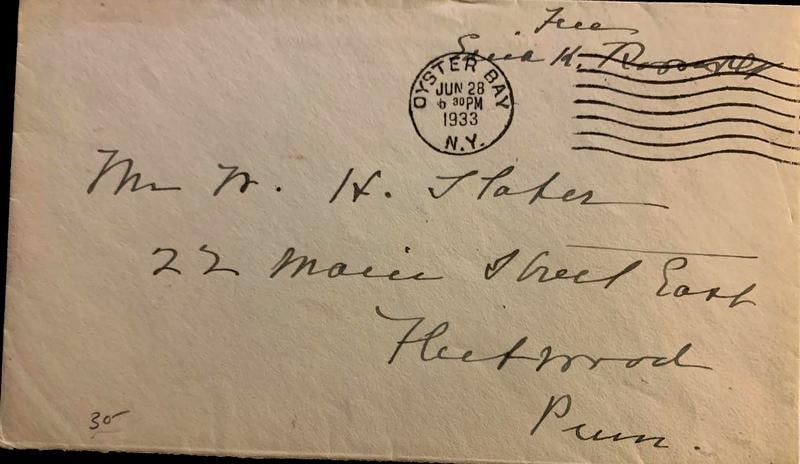 Free
Edith K. Roosevelt
OYSTER BAY
JUN 28
6 30 PM
1933
N.Y.
Mr W. H. Slater
22 Main Street East
Fleetwood
Penn.
35